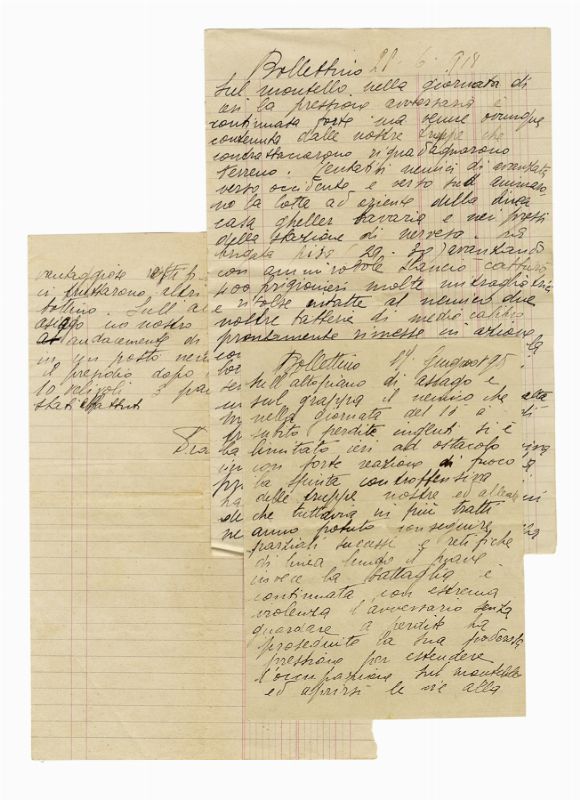 Bollettino 20.6.918
Sul montello nella giornata di
ieri la pressione avversaria è
continuata forte ma venne ovunque
contenuta dalle nostre truppe che
contrattaccarono riguadagnarono
terreno. Tentativi nemici di avanzata
verso occidente e verso sud
no la lotta ad oriente della linea
casa gheller bavaria e nei pressi
della stazione di nervesa. La
brigata pisa 29. 30) avanzando
con ammirabile slancio catturò
400 prigionieri molte mitragliatrici
e ritolse intatte al nemico due
nostre batterie di medio calibro
prontamente rimesse in azione
Bollettino 17 giugno
Sull'altopiano di assago e
sul grappa il nemico che
nella giornata del 15 a
subito perdite ingenti si è
limitato ieri ad ostacolo
con forte reazione di fuoco
la spinta controffensiva
delle truppe nostre ed alleate
che tuttavia in più tratti
anno potuto conseguire
parziali successi e retifiche
di linea lungo il piave
invece la battaglia è
continuata con estrema
violenza l'avversario senza
guardare a perdite ha
proseguito la sua poderosa
pressione per estendere
l'occupazione sul montello
ed aprirsi le vie alla
vantaggioso
ci fruttarono altri
bottino. Sull'al
asiago un nostro
andacemento di
in un posto nemi
il presidio dopo
10 velivoli 3 pal
stati abattuti